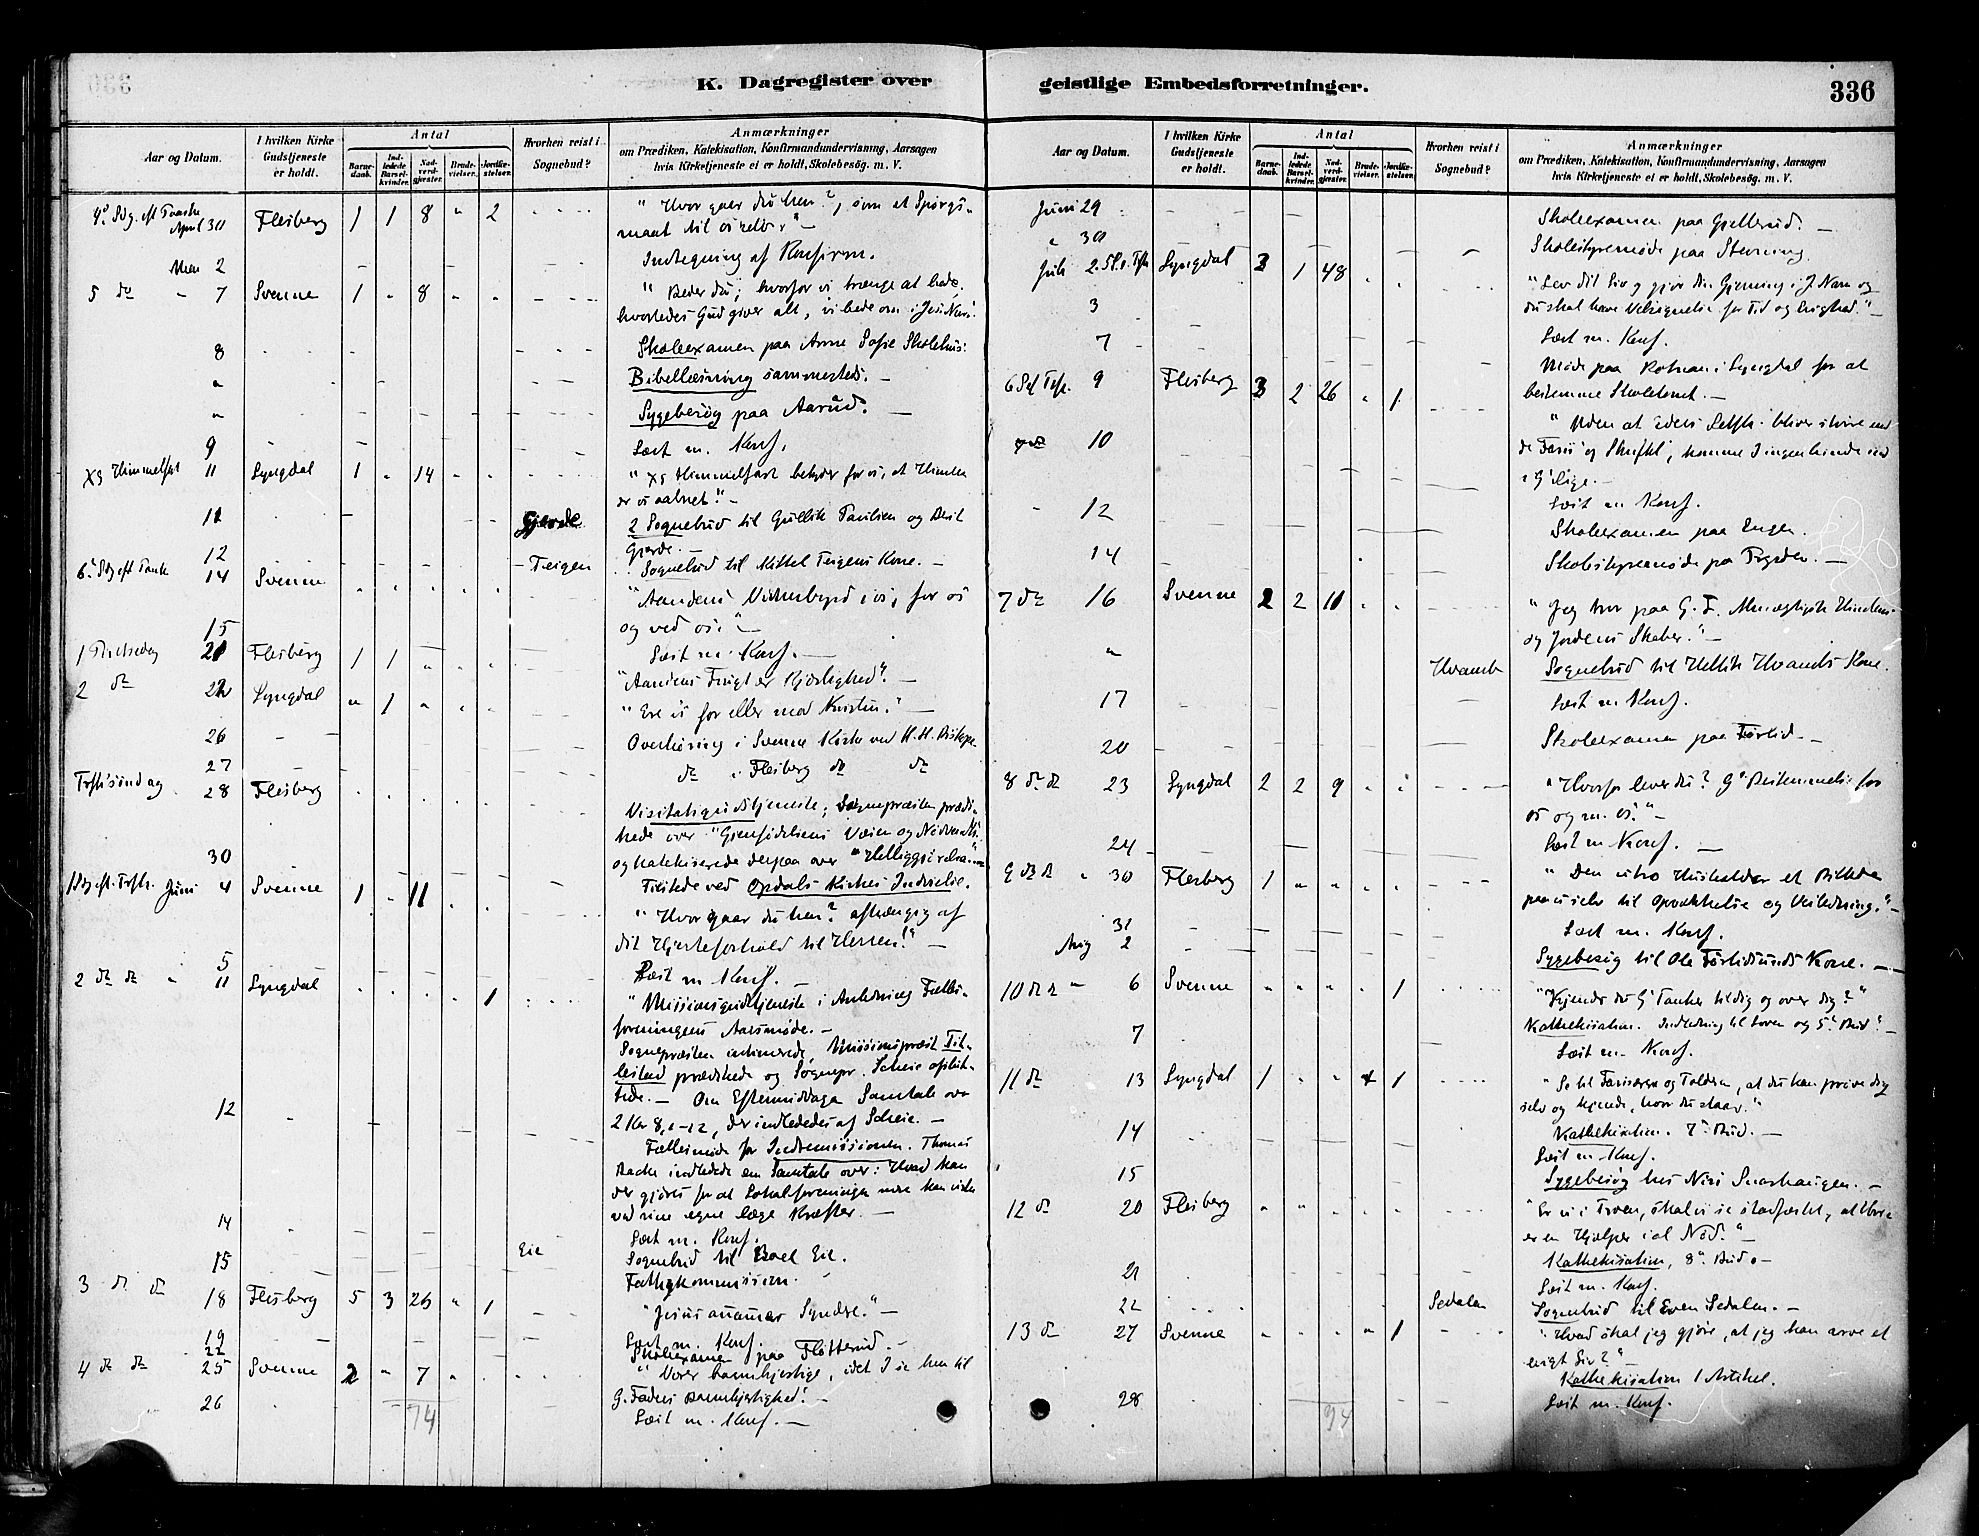 K. Dagregister over geistlige Embedsforretninger. 336
Aar og Datum. I hvilken Kirke Gudstjeneste er holdt. Antal Barnedaab. Indledede Barselkvinder. Nadverdgjæster. Brudevielser. Jordfæstelser. Hvorhen reist i Sognebud? Anmærkninger om Prædiken, Katekisation, Konfirmandundervisning, Aarsagen hvis Kirketjeneste ei er holdt, Skolebesøg. m. V.
April 30 Flesberg 1 1 8 " 2 "Hvor gaar du hen?, som et Spørgs-
maal til os selv."
Mai 2 Indtegning af Konfirm.
5 do " 7 Svenne 1 " 8 " " "Beder du; hvorfor vi trænge at bede,
hvorledes Gud giver alt, vi bede om i Jesu Navn."
8 Skoleexamen paa Anne Sofie Skolehus.
" Bibellæsning sammesteds.
" Sygebesøg paa Aarud.
9 Læst m. Konf.
Xs Himmelfart 11 Lyngdal 1 " 14 " " "Xs Himmelfart betyder for os, at Himlen
er os aabnet."
11 Gjerde 2 Sognebud til Gullik Paulsen og
Gjerde.
12 Teigen Sognebud til Kittel Teigens Kone.
14 Svenne "Aandens Vidnesbyrd i os, for os
og ved os."
15 Læst m. Konf.
21 Flesberg 1 1 " " " "Aandens Frugt er Kjærlighed".
2 do 22 Lyngdal " 1 " " " "Ere vi for eller mod Kristus."
26 Overhøring i Svenne Kirke ved H. H. Biskop.
27 do i Flesberg do do
28 Flesberg Visitatsgudstjeneste; Sognepræsten prædi-
kede over "Gjenfødelsens Væsen og Nødvendh.
og katekiserede derpaa over "Helliggjørelsen"
30 Tilstede ved Opdals Kirkes Indvielse.
Juni 4 Svenne 1 " 11 " " "Hvor gaar du hen? afhængig af
dit Hjerteforhold til Herren!"
5 Læst m. Konf.
2 do do " 11 Lyngdal " " " " 1 "Missionsgudstjeneste i Anledning Fælles-
foreningens Aarsmøde.
Sognepræsten intimerede, Missionspræst Tit-
lestad prædikede og Sognepr. Scheie afslut-
tede. Om Eftermiddagen Samtale over
2 Kor 8,1-12, der indlededes af Scheie.
12 Fællesmøde for Indremissionen. Thomas
indledede en Samtale over: Hvad kan
der gjøres for at Lokalforeninger mere kan virke
ved sine egne læge Kræfter.
14 Læst m. Konf.
15 Eie Sognebud til Boel Eie.
Fattigkommission.
3 do do 18 Flesberg 5 3 26 " 1 "Jesus annamer Syndere."
19 Læst m. Konf.
22 Skoleexamen paa Fløtterud.
4 do do 25 Svenne 2 " 7 " "Vorer barmhjertige, idet I se hen til
G. Faders Barmhjertighed."
26 Læst m. Konf.
74
K. Dagregister over geistlige Embedsforretninger. Aar og Datum. I hvilken Kirke Gudstjeneste er holdt. Antal Barnedaab. Indledede Barselkvinder. Nadverdgjæster. Brudevielser. Jordfæstelser. Hvorhen reist i Sognebud? Anmærkninger om Prædiken, Katekisation, Konfirmandundervisning, Aarsagen hvis Kirketjeneste ei er holdt, Skolebesøg. m. V.
Juni 29 Skoleexamen paa Gjellerud.
" 30 Skolestyremøde paa Stevning.
Juli 2 Lyngdal 3 1 48 "Lev dit Liv og gjør din Gjerning i J. Navn og
du skal have Velsignelse for Tid og Evighed."
3 Læst m. Konf.
7 Møde paa i Lyngdal for at
bestemme Skoletomt.
9 Flesberg 3 2 26 " 1 "Uden at Eders Retf. bliver større end
de Faris. og Skriftkl., komme I ingenlunde ind
i G. Rige.
10 Læst m. Konf.
12 Skoleexamen paa Enger.
14 Skolestyremøde paa
7 do 16 Svenne 2 2 11 " " "Jeg tror paa G. F. Almægtigste Himlens
og Jordens Skaber."
" Hvamb Sognebud til Hellik Hvambs Kone.
17 Læst m. Konf.
20 Skoleexamen paa Førlid.
8 do do 23 Lyngdal 2 2 9 " " "Hvorfor lever du? G's Bestemmelse for
os og m. os."
24 Læst m. Konf.
9 do do " 30 Flesberg 1 " " " " "Den utro Husholder et Billede
paa os selv til Opvækkelse og Veiledning."
31 Læst m. Konf.
Aug 2 Sygebesøg til Ole Førlidsunds Kone.
10 do do " 6 Svenne " " " " 1 "Kjender du G's Tanker til dig og over dig?"
Kathekisation. Indledning til Loven og 5te Bud.
7 Læst m. Konf.
11 do 13 Lyngdal 1 " " 1 "Se til Farisæeren og Tolderen, at du kan prøve dig
selv og kjende, hvor du staar."
Kathekisation. 7de Bud.
14 Læst m. Konf.
15 Sygebesøg hos
12 do 20 Flesberg "Er vi i Troen, skal vi se stadfæstet, at Herren
er en Hjælper i al Nød."
Kathekisation, 8de Bud.
21 Læst m. Konf.
22 Sedalen Sognebud til Even Sedalen.
13 do 27 Svenne " " " " 1 "Hvad skal jeg gjøre, at jeg kan arve et
evigt Liv?"
Kathekisation 1 Artikel.
28 Læst m. Konf.
94